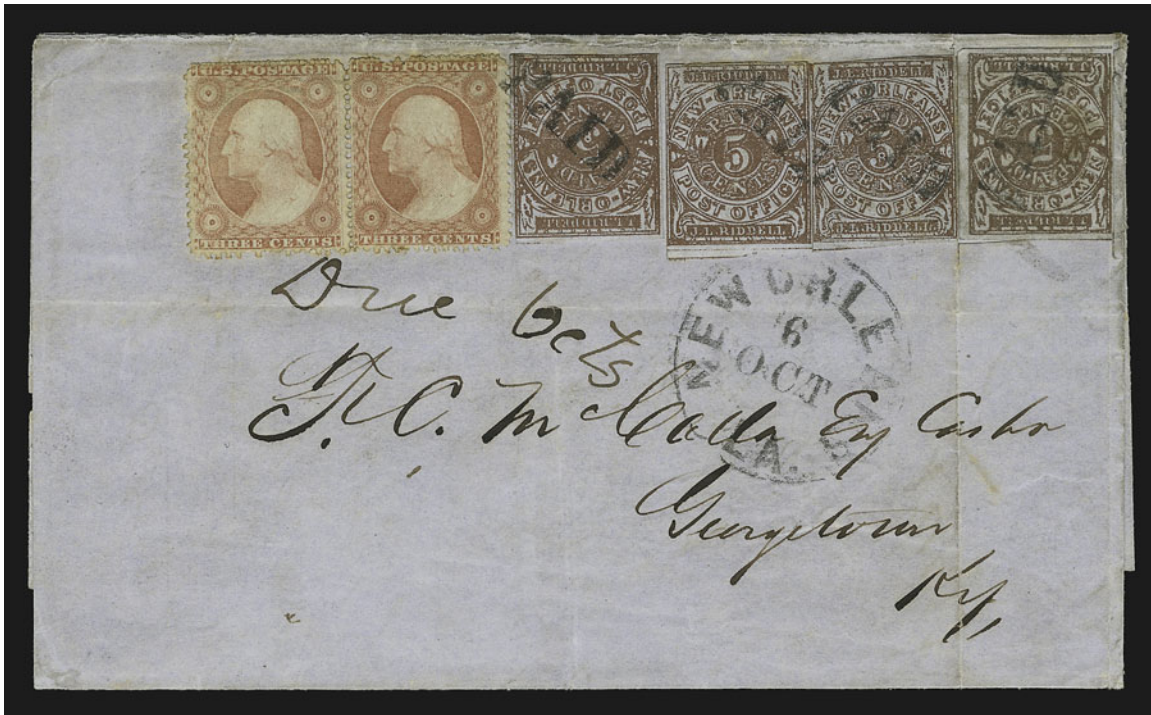 U.S. POSTAGE
THREE CENTS
U.S. POSTAGE
THREE CENTS
PAID
J.L. RIDDELL
NEW-ORLEANS
POST OFFICE
J.L. RIDDELL
J.L. RIDDELL
NEW-ORLEANS
PAID
5
CENTS
POST OFFICE
J.L. RIDDELL
J.L. RIDDELL
NEW-ORLEANS
PAID
5
CENTS
POST OFFICE
J.L. RIDDELL
J.L. RIDDELL
NEW-ORLEANS
5
POST OFFICE
J.L. RIDDELL
NEW ORLEANS
6
OCT
LA.
Due 6 cts
Georgetown
Ky,